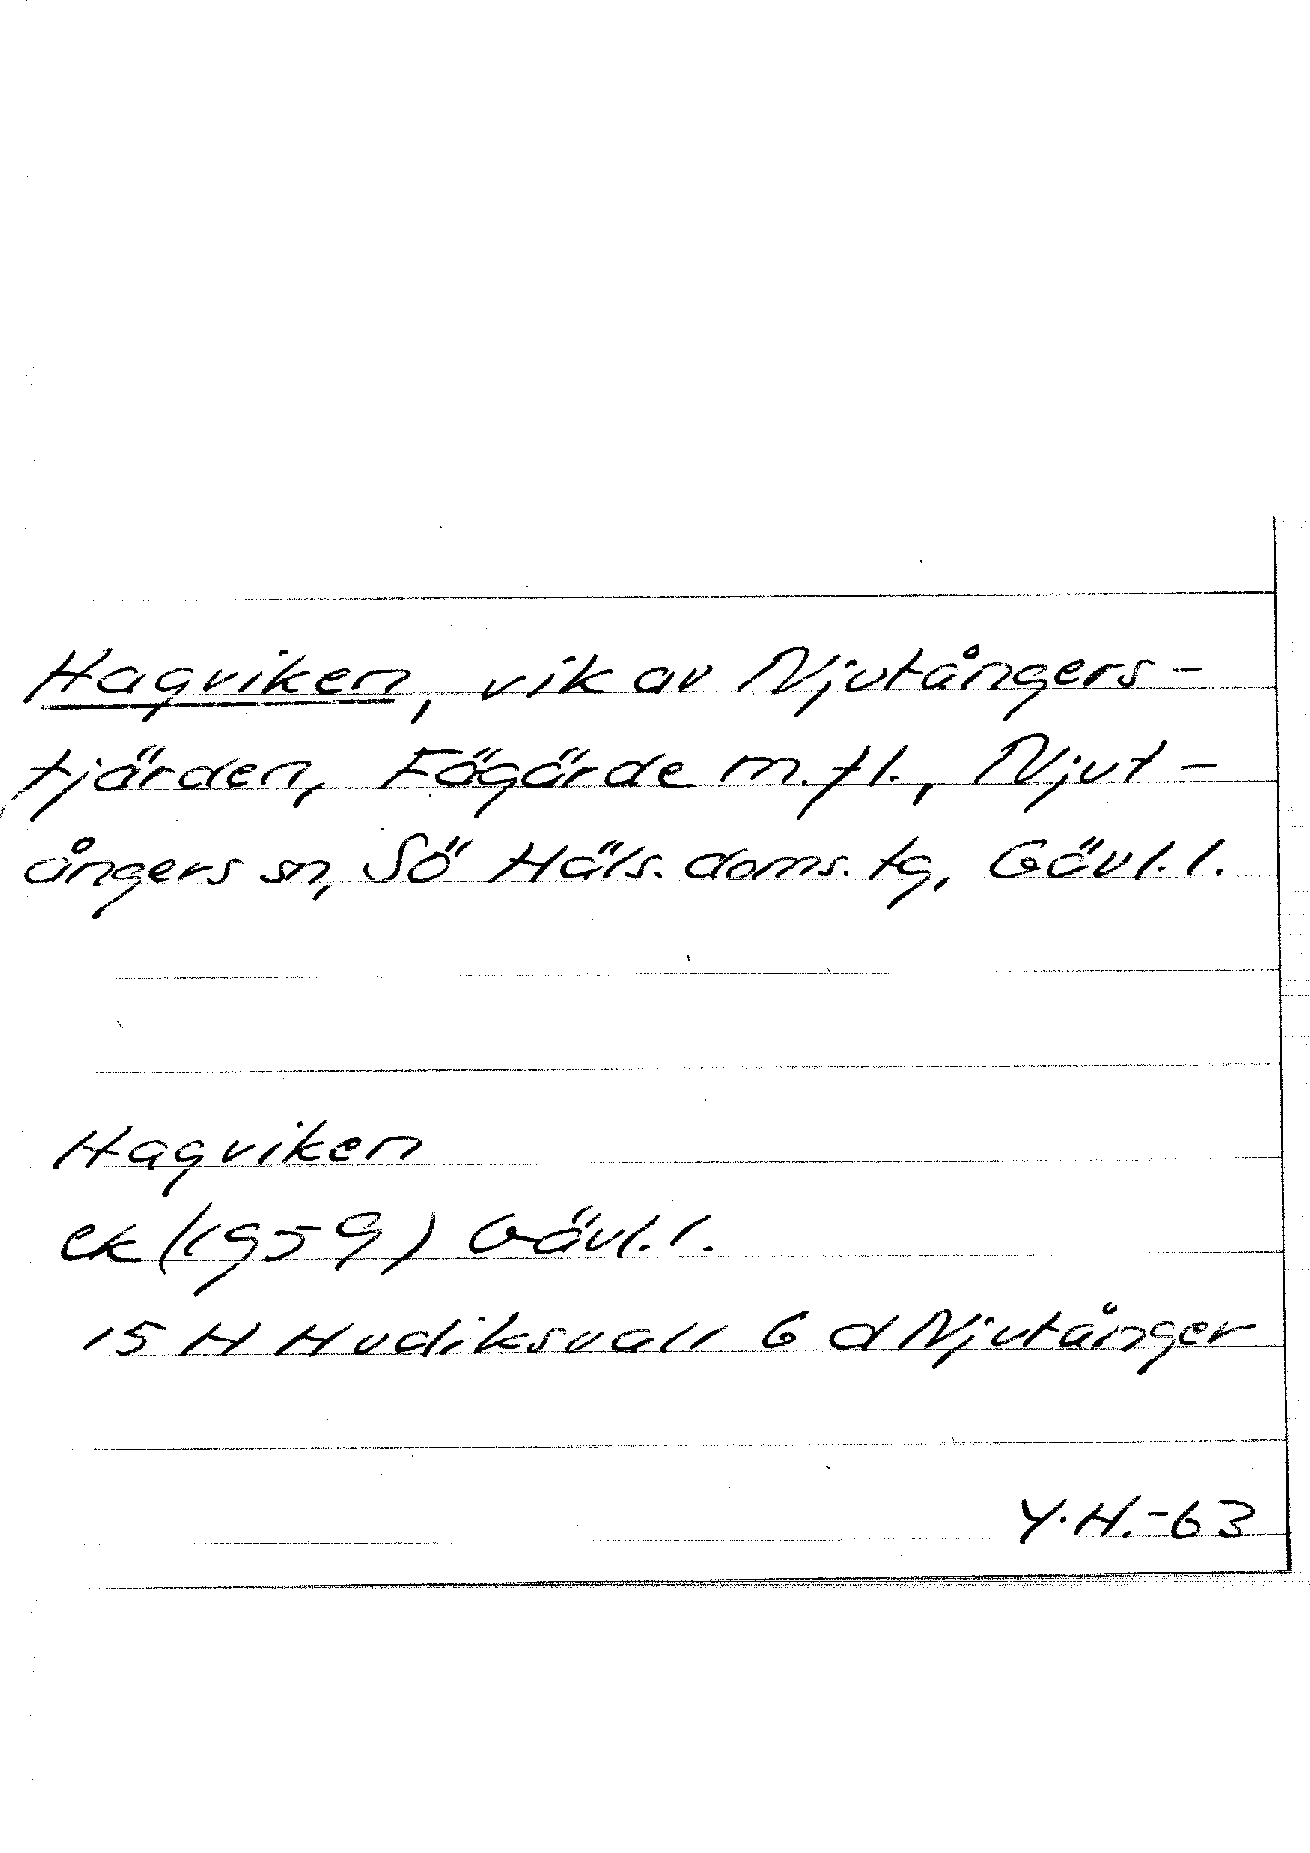 Hagviken, vik av Njutångers-
fjärden, Fägärde m.fl., Njut-
ångers sn, Sö Häls. doms. tg, Gävl.l.
Hagviken
ek (1959) Gävl.l.
15 H Hudiksvall 6 d Njutånger
Y.H.-63